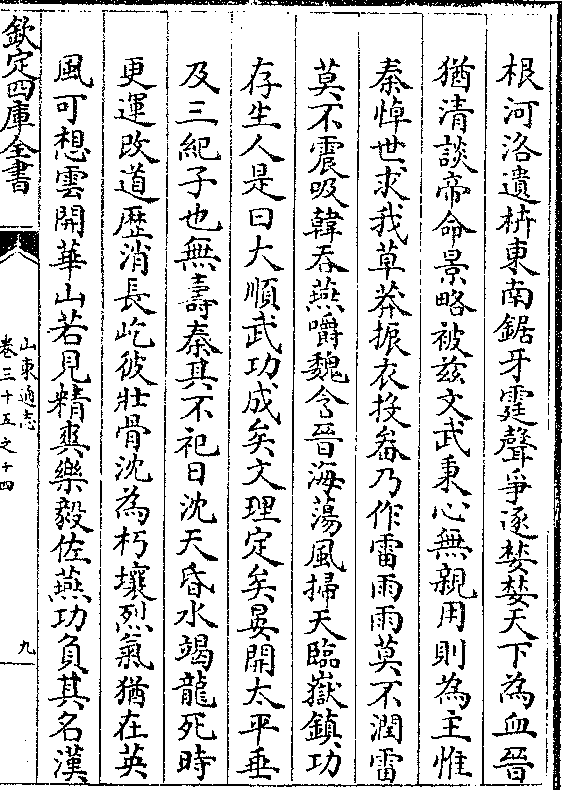 根河洛遺枿東南鋸牙霆聲爭逐婪婪天下為血晉
猶清談帝命景略被兹文武秉心無親用則為主惟
秦悼世求我草莽振衣投畚乃作雷雨雨莫不潤雷
莫不震吸韓吞燕嚼魏含晉海蕩風掃天臨嶽鎮功
存生人是曰大順武功成矣文理定矣晏開太平垂
及三紀子也無壽秦其不祀日沈天昏水竭龍死時
更運改道歴消長屹彼壯骨沈為朽壤烈氣猶在英
風可想雲開華山若見精爽樂毅佐燕功負其名漢
欽定四庫全書
山東通志
卷三十五之十四
九